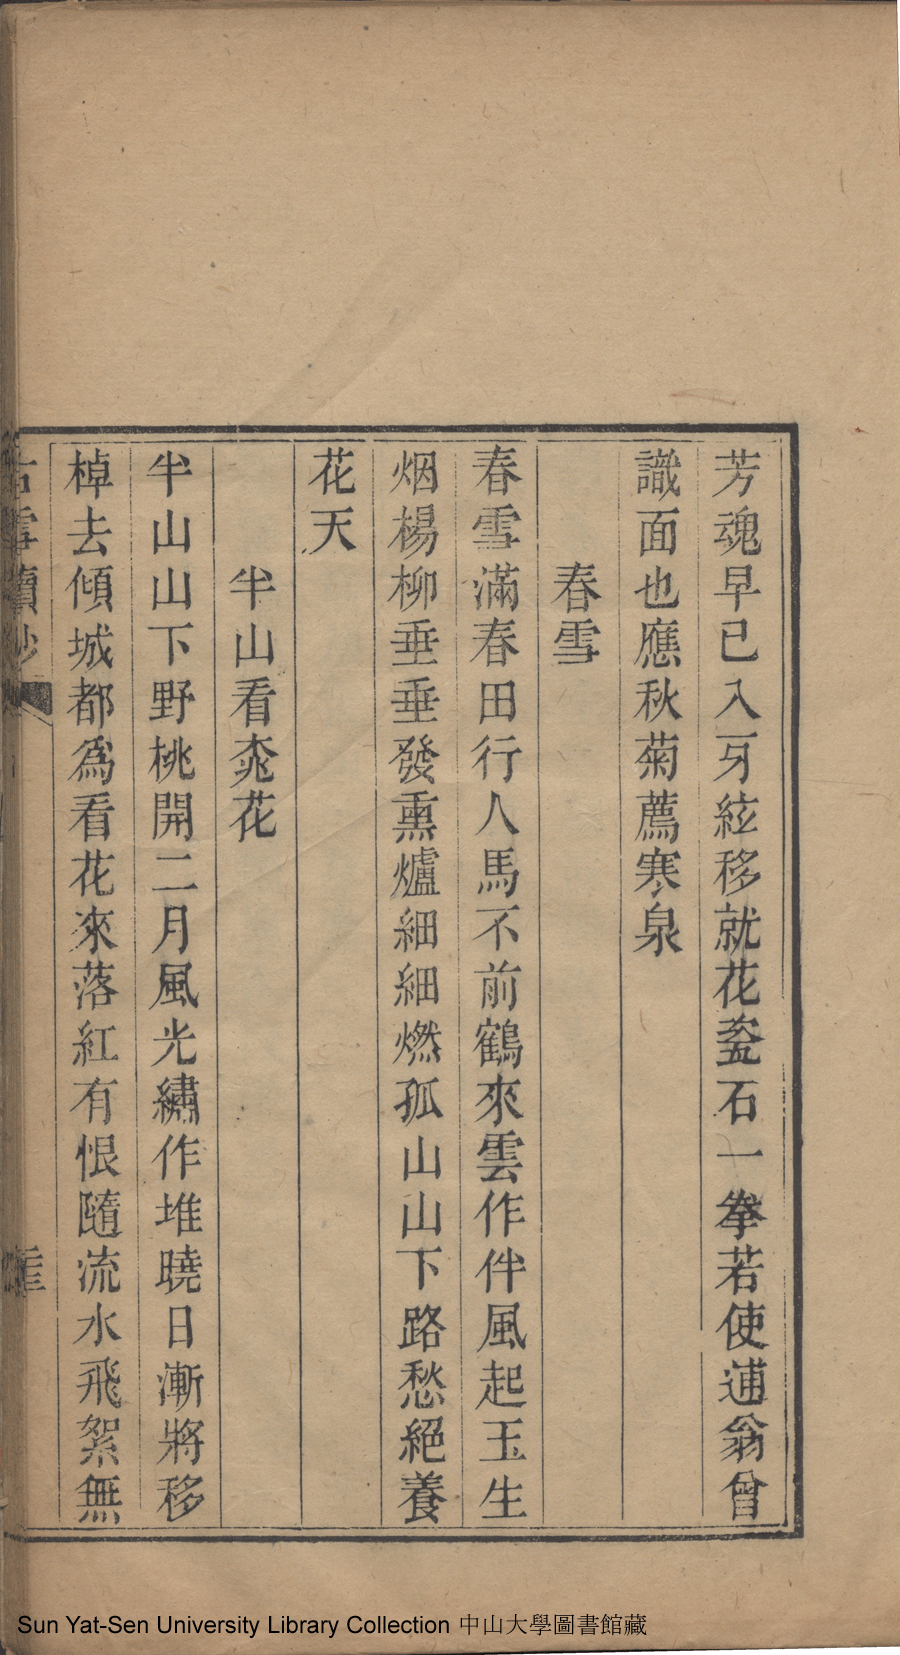 芳魂早已入牙絃移就花甆石一拳若使逋翁曾
識面也應秋菊薦寒泉
春雪
春雪滿春田行人馬不前鶴來雲作伴風起玉生
烟楊柳垂垂發熏爐細細燃孤山山下路愁絕養
花天
半山看桃花
半山山下野桃開二月風光繡作堆曉日漸將移
棹去傾城都為看花來落紅有恨隨流水飛絮無
古雪續鈔
Sun Yat-Sen University Library Collection 中山大學圖書館藏